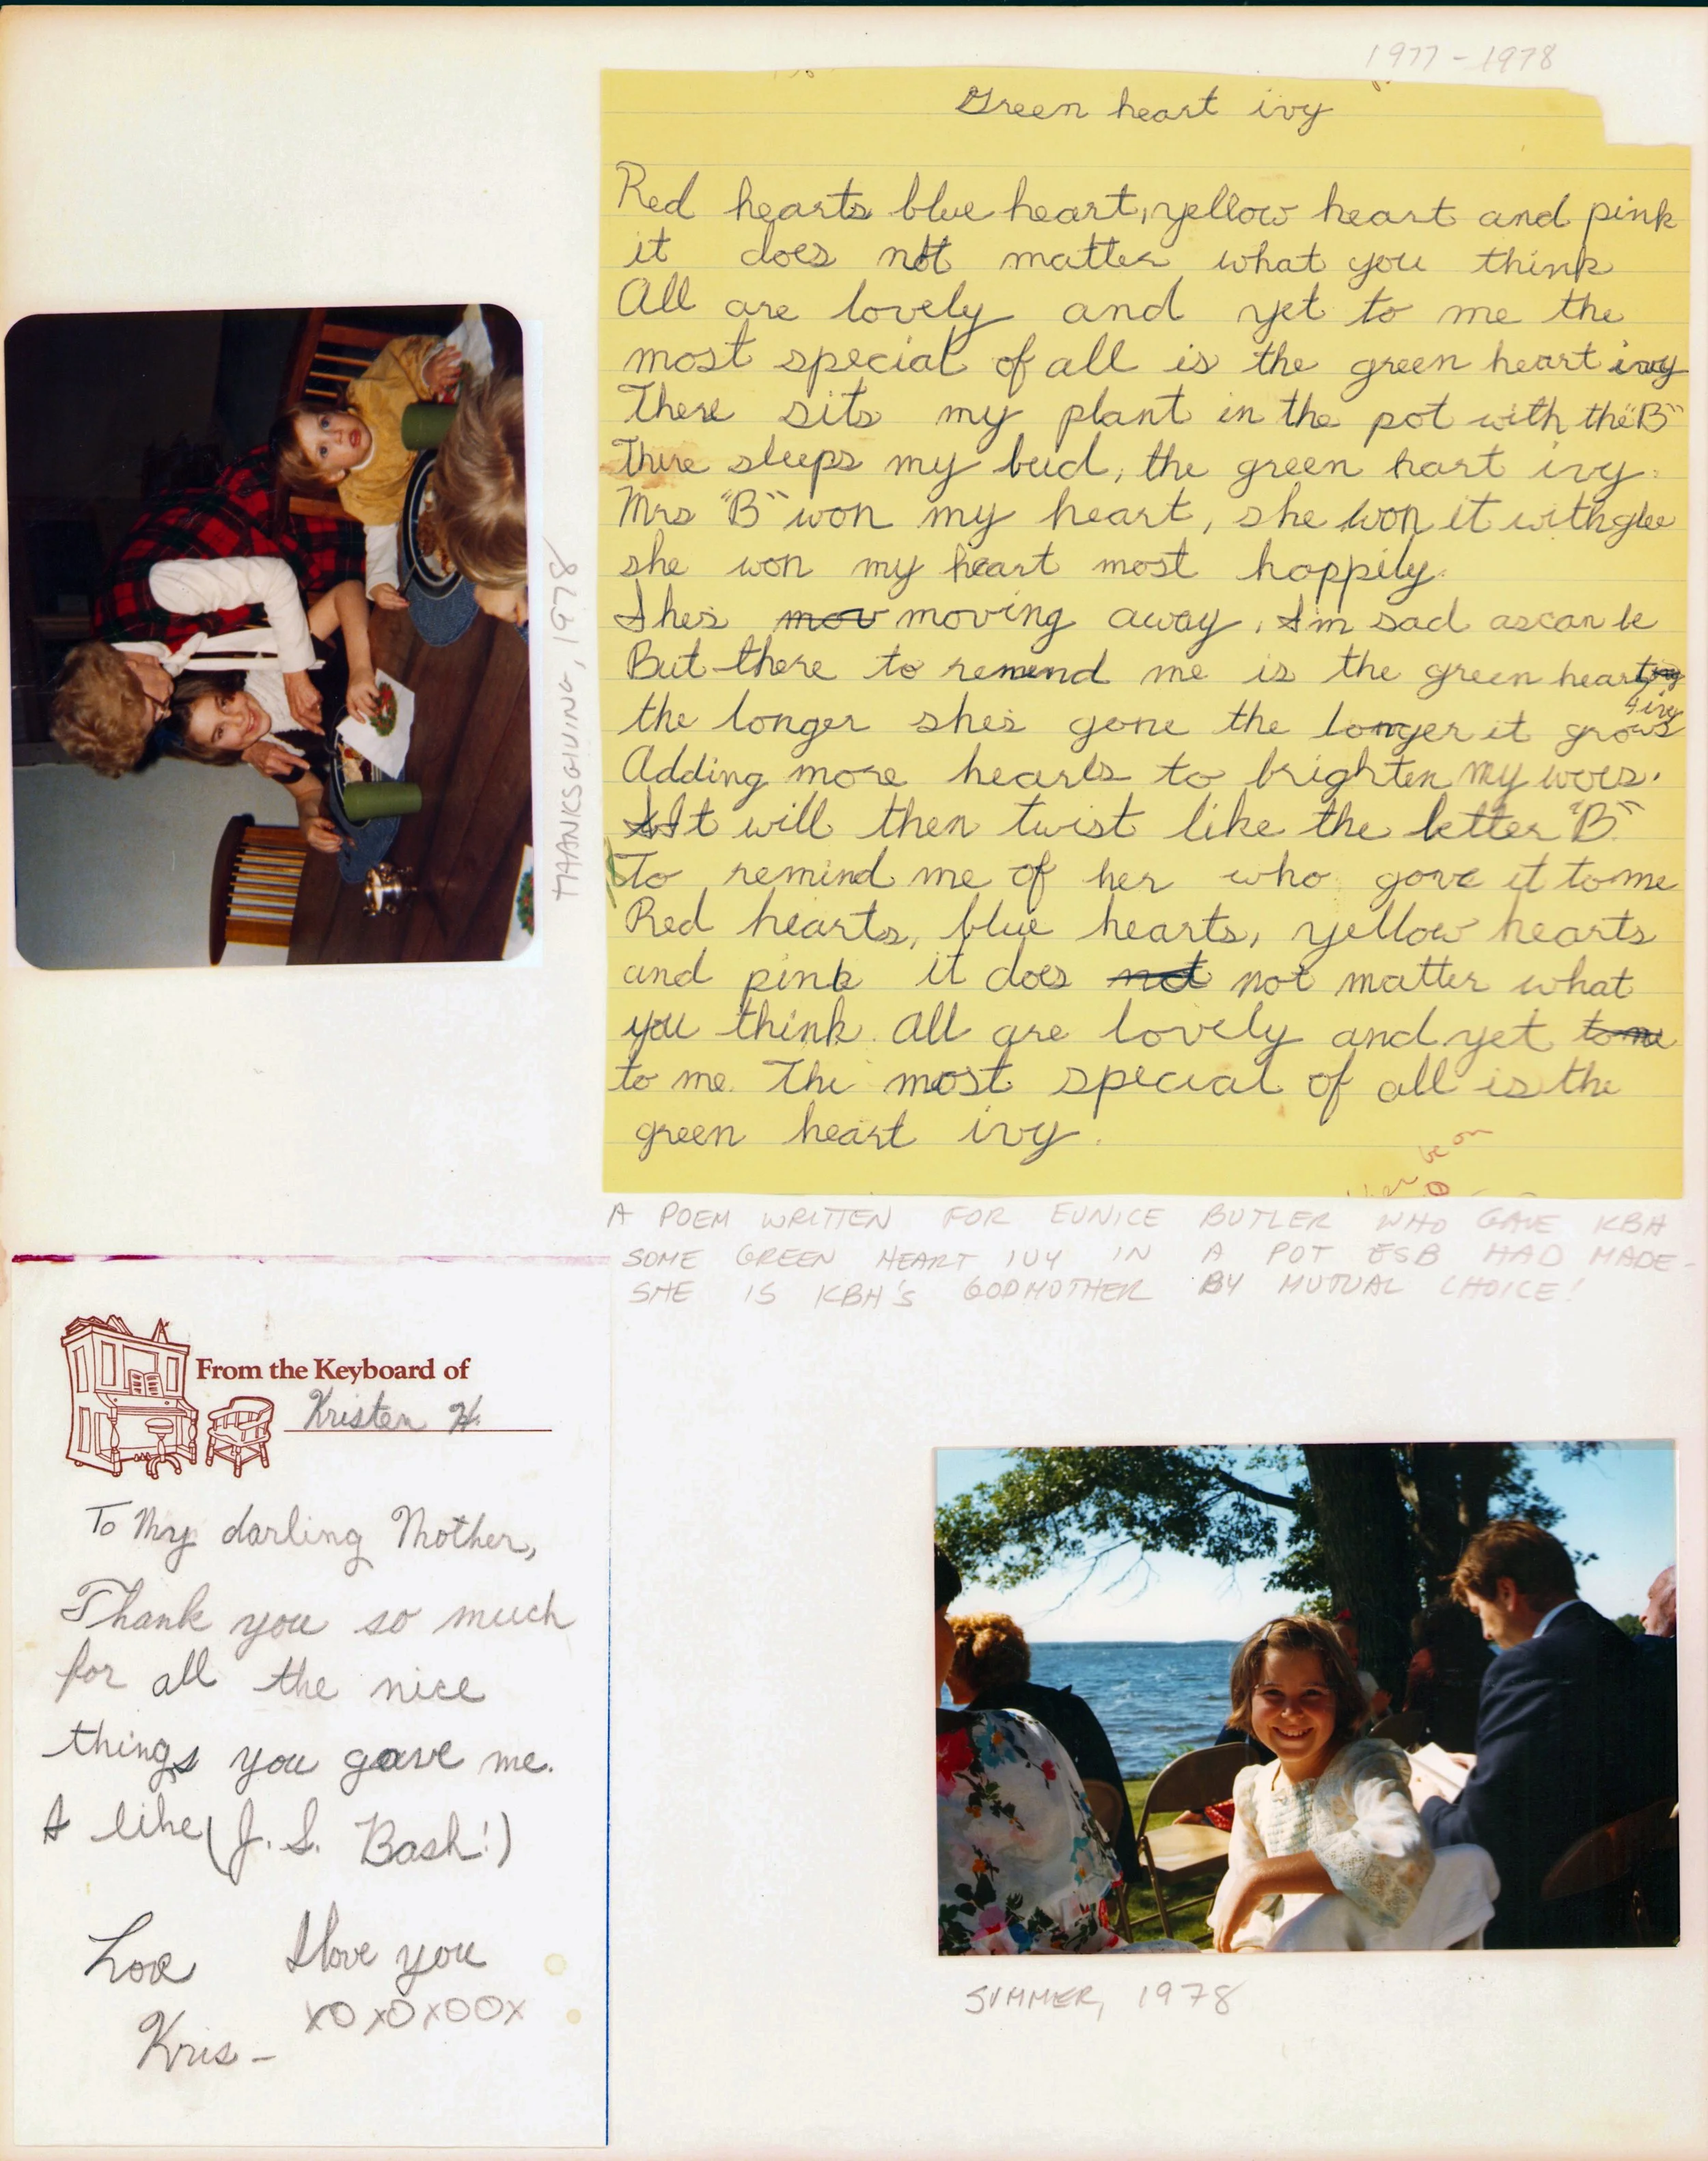 1977-1978
Green heart ivy
Red hearts blue heart, yellow heart and pink
it does not matter what you think
All are lovely and yet to me the
most special of all is the green heart ivy
There sits my plant in the pot with the "B"
There sleeps my bud, the green hart ivy.
Mrs "B" won my heart, she won it with glee
she won my heart most happily.
Shes mov moving away, I'm sad as can be
But there to remend me is the green heart
ivy
the longer shes gone the longer it grows
Adding more hearts to brighten my woes.
It will then twist like the letter "B"
To remind me of her who gave it to me
Red hearts, blue hearts, yellow hearts
and pink it does not not matter what
you think. All are lovely and yet to me
to me. The most special of all is the
green heart ivy.
be on
A POEM WRITTEN FOR EUNICE BUTLER WHO GAVE KBH
SOME GREEN HEART IVY IN A POT ESB HAD MADE-
SHE IS KBH'S GODMOTHER BY MUTUAL CHOICE!
THANKSGIVING, 1978
From the Keyboard of
Kristen H.
To My darling Mother,
Thank you so much
for all the nice
things you gave me.
I like (J. S. Bash!)
Love I love you
xOxOxOOx
Kris-
SUMMER, 1978